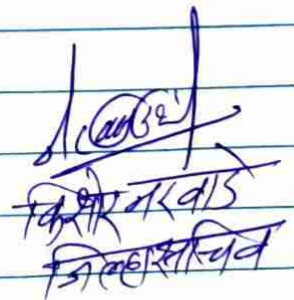 किशोर नरवाडे
जिल्हासचिव